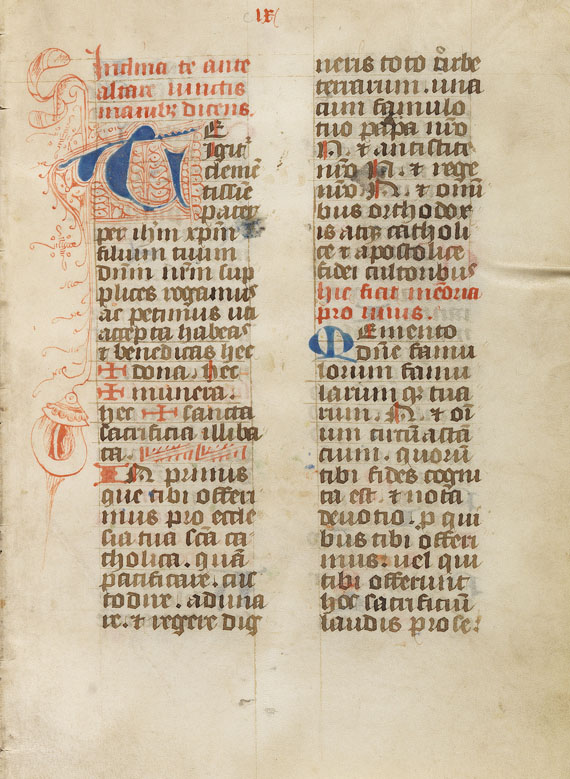 lx
Inclina te ante
altare iunctis
manibꝫ dicens.
TE
Igit᷑
clemē
tissīe
pater
per ihm̄ xp̄m
filium tuum
dn̄m nr̄m sup
plices rogamus
ac petimus uti
accepta habeas
⁊ benedicas hec
✠ dona. hec
✠ munera.
hec ✠ sancta
sacrificia illiba
ta.
IN primis
que tibi offeri
mus pro eccle
sia tua sc̄a ca
tholica. quā
pacificare. cus
todire. aduna
re. ⁊ regere dig
neris toto orbe
terrarum. una
cum famulo
tuo papa nr̄o
N. ⁊ antistite
nr̄o N. ⁊ rege
nr̄o N. ⁊ omī
bus orthodox
is atqꝫ catholi
ce ⁊ apostolice
fidei cultoribus
hic facit mēoria
pro uiuis.
Memento
dn̄e famu
lorum famu
larum qꝫ tua
rum. N. ⁊ oī
um circūastā
cium. quorū
tibi fides cogni
ta est. ⁊ nota
deuotio. ꝓ qui
bus tibi offeri
mus. uel qui
tibi offerunt
hoc sacrificiū
laudis pro se.